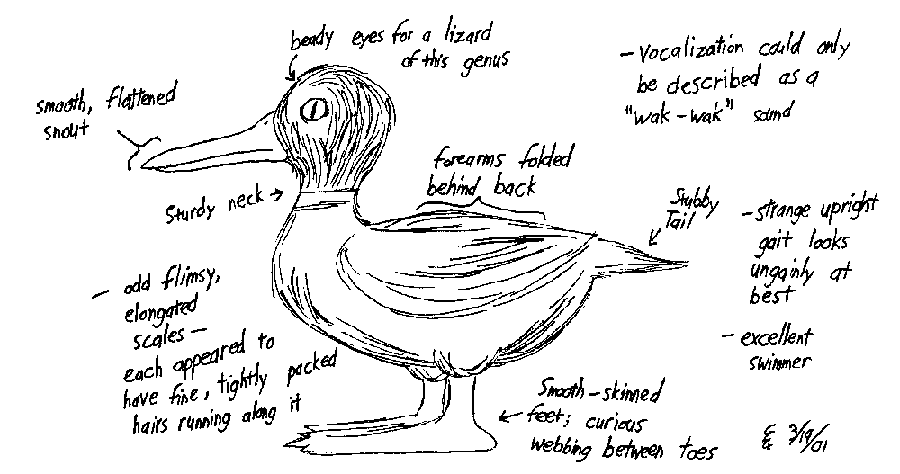 beady eyes for a lizard
of this genus
smooth, flattened
snout
- Vocalization could only
be described as a
"wak-wak" sound
forearms folded
behind back
Sturdy neck
Stubby
Tail
- strange upright
gait looks
ungainly at
best
- odd flimsy,
elongated
scales -
each appeared to
have fine, tightly packed
hairs running along it
- excellent
swimmer
Smooth-skinned
feet; curious
webbing between toes
3/19/01